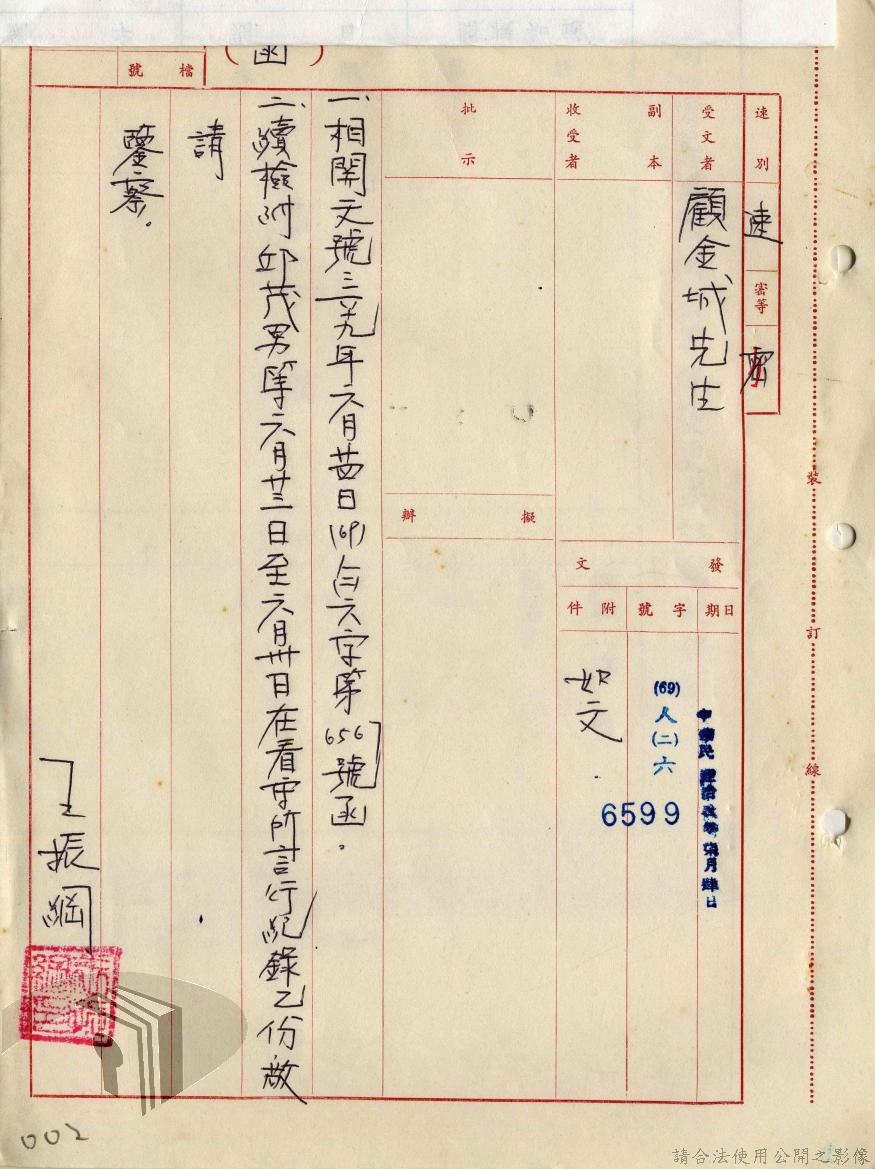 (函)
檔號
速別
速
密等
密
受文者
顧金城先生
副本
收受者
批示
擬辦
發文
日期
字號
附件
中華民國 年柒月肆日
(69)
人(二)六
6599
如文
一、相關文號:六九年六月廿四日(69)人(二)六字第656號函。
二、續檢附邱茂男等六月廿三日至六月卅日在看守所言行紀錄乙份敬
請
鑒察。
王振綱
裝
訂
線
002
請合法使用公開之影像